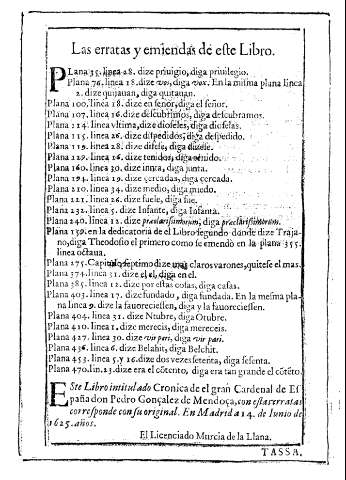 Las erratas y emiendas de este Libro.
PLana 35. linea 28. dize priuigio, diga priuilegio.
Plana 76. linea 18. dize voi, diga vox. En la misma plana linea
2. dize quijauan, diga quitauan.
Plana 100. linea 18. dize en señor, diga el señor.
Plana 107. linea 16. dize descubrimos, diga descubramos.
Plana 114. linea vltima, dize dioseles, diga dioselas.
Plana 115. linea 26. dize despedidos, diga despedido.
Plana 119. linea 28. dize difese, diga
Plana 129. linea 16. dize tenidos, diga
Plana 160. linea 30. dize innta, diga junta.
Plana 194. linea 19. dize çercadas, diga cercada.
Plana 210. linea 34. dize medio, diga miedo.
Plana 221. linea 26. dize fuele, diga fue.
Plana 232. linea 5. dize Infante, diga Infanta.
Plana 240. linea 12. dize diga
Plana 139. en la dedicatoria de el Libro segundo donde dize Traja-
no, diga Theodosio el primero como se emendò en la plana 355.
linea octaua.
Plana 275. Capitulo septimo dize mas claros varones, quitese el mas.
Plana 374. linea 31. dize el el, diga en el.
Plana 385. linea 12. dize por estas cosas, diga casas.
Plana 403. linea 17. dize fundado, diga fundada. En la mesma pla-
na linea 9. dize la fauoreciessen, diga y la fauoreciessen.
Plana 404. linea 31. dize Ntubre, diga Otubre.
Plana 410. linea 1. dize merecis, diga mereceis.
Plana 427. linea 30. dize viri pari, diga vir pari.
Plana 436. linea 6. dize Belahit, diga Belchit.
Plana 453. linea 5. y 16. dize dos vezes setenta, diga sesenta.
Plana 470. lin. 23. dize era el cōtento, diga era tan grande el cōtēto.
ESte Libro intitulado Cronica de el gran Cardenal de Es
paña don Pedro Gonçalez de Mendoça, con estas erratas
corresponde con su original. En Madrid a 14. de Iunio de
1625. años.
El Licenciado Murcia de la Llana.
TASSA.